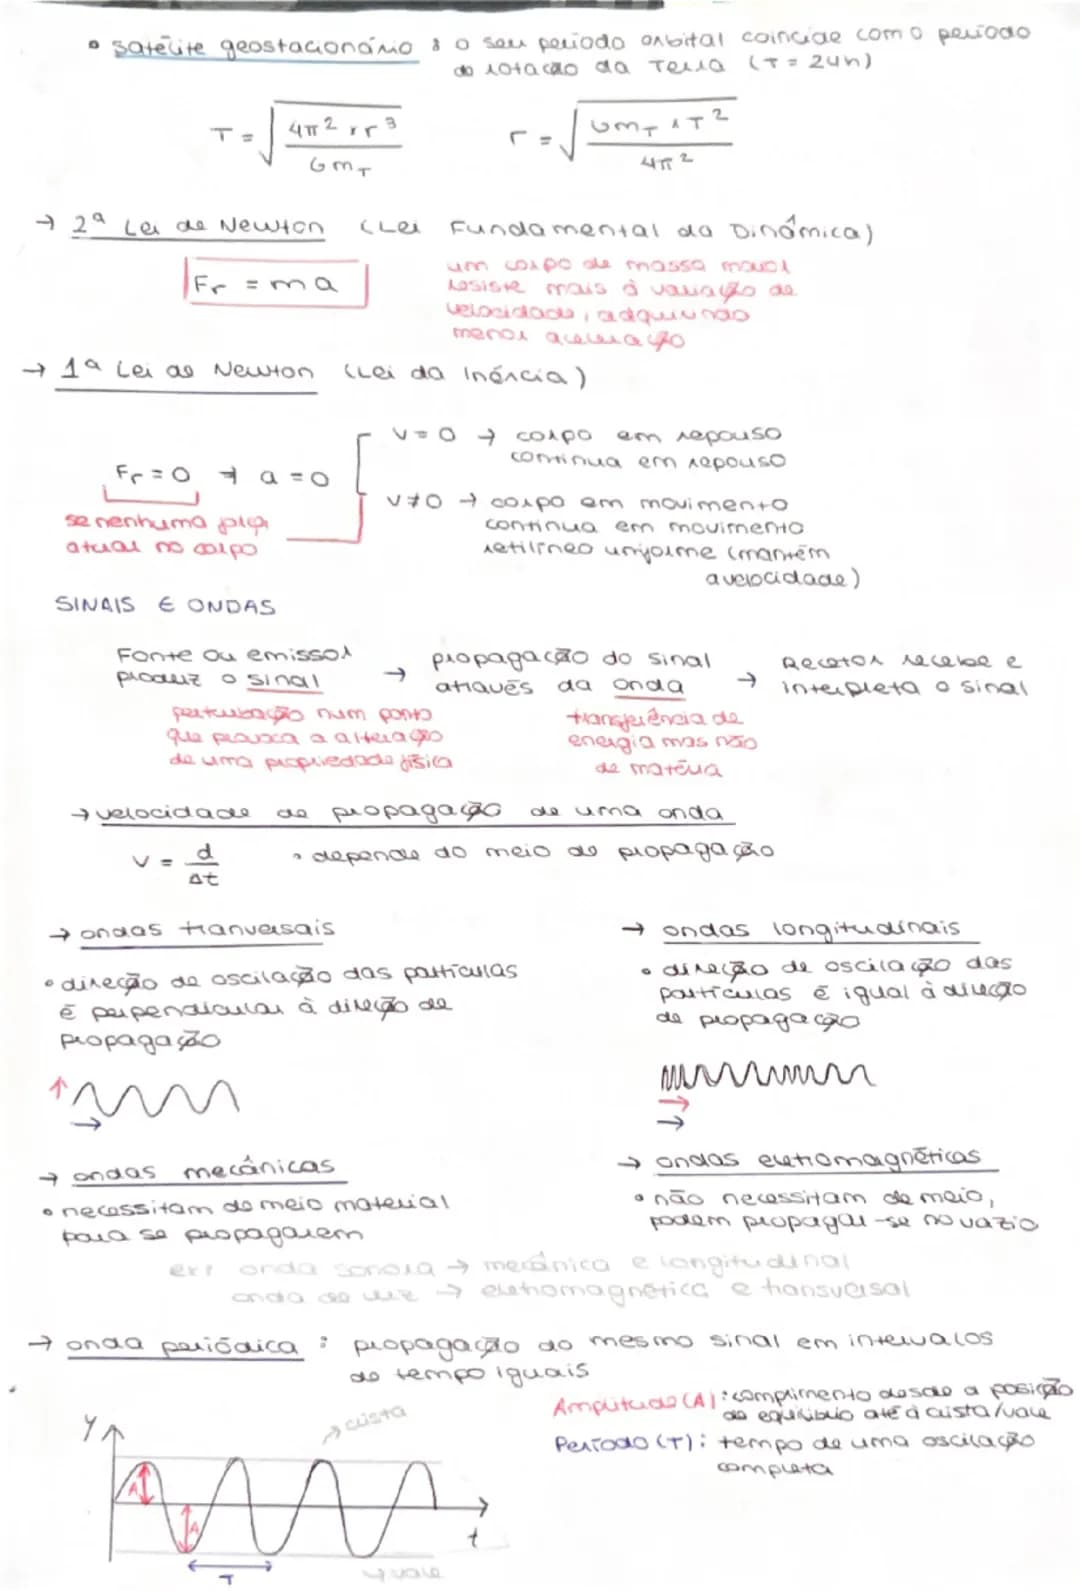 • satélite geostacionário : o seu período orbital coincide com o período
de rotação da Terra (T = 24h)
T = √(4π² × r³ / G mT)
r = √(GmT × T² / 4π²)
→ 2ª Lei de Newton (Lei Fundamental da Dinâmica)
Fr = m a
um corpo de massa maior
resiste mais à variação de
velocidade, adquirindo
menor aceleração
→ 1ª Lei de Newton (Lei da Inércia)
Fr = 0 → a = 0
se nenhuma força
atuar no corpo
v = 0 → corpo em repouso
continua em repouso
v ≠ 0 → corpo em movimento
continua em movimento
retilíneo uniforme (mantém
a velocidade)
SINAIS E ONDAS
Fonte ou emissor
produz o sinal
→ propagação do sinal
através da onda
→ Recetor recebe e
interpreta o sinal
perturbação num ponto
que provoca a alteração
de uma propriedade física
transferência de
energia mas não
de matéria
→ velocidade de propagação de uma onda
v = d / Δt
• depende do meio de propagação
→ ondas tranversais
• direção de oscilação das partículas
é perpendicular à direção de
propagação
→ ondas longitudinais
• direção de oscilação das
partículas é igual à direção
de propagação
→ ondas mecânicas
• necessitam de meio material
para se propagarem
→ ondas eletromagnéticas
• não necessitam de meio,
podem propagar-se no vazio
ex: onda sonora → mecânica e longitudinal
onda de luz → eletromagnética e transversal
→ onda periódica : propagação do mesmo sinal em intervalos
de tempo iguais
Amplitude (A) : comprimento desde a posição
de equilíbrio até à crista/vale
Período (T) : tempo de uma oscilação
completa
y
→ crista
A
A
t
T
→ vale